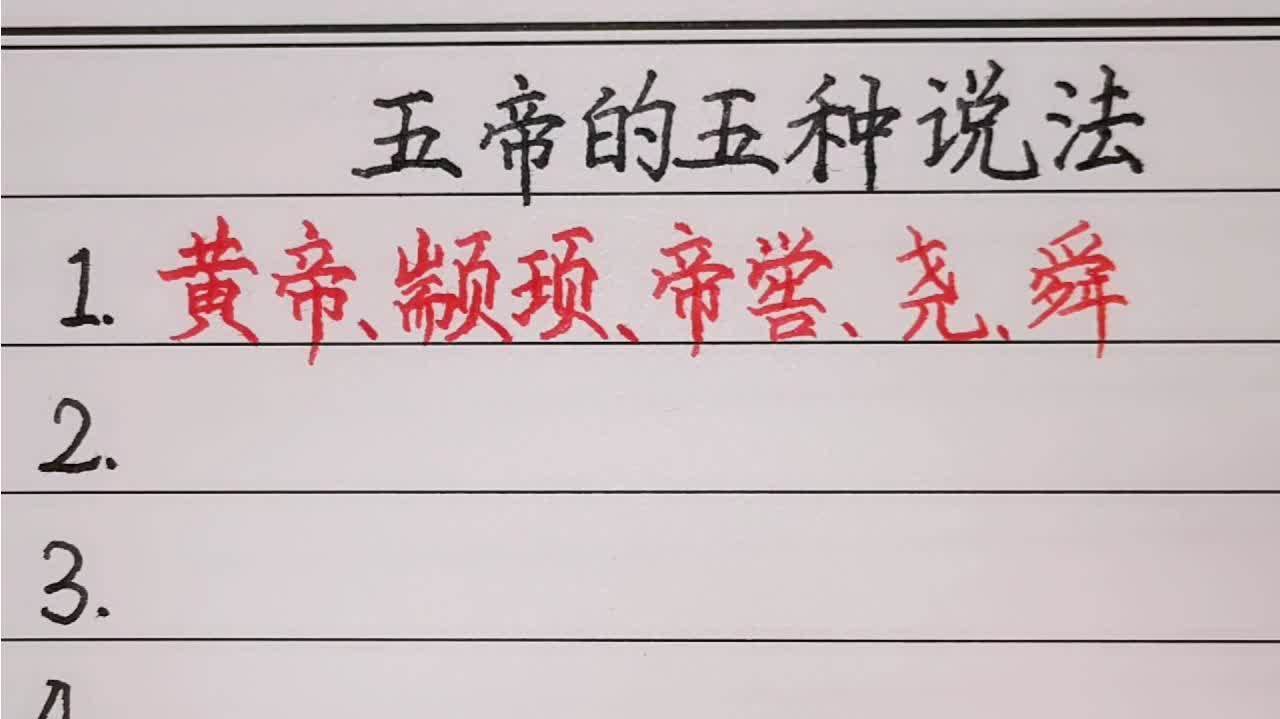 五帝的五种说法
1. 黄帝、颛顼、帝喾、尧、舜
2.
3.